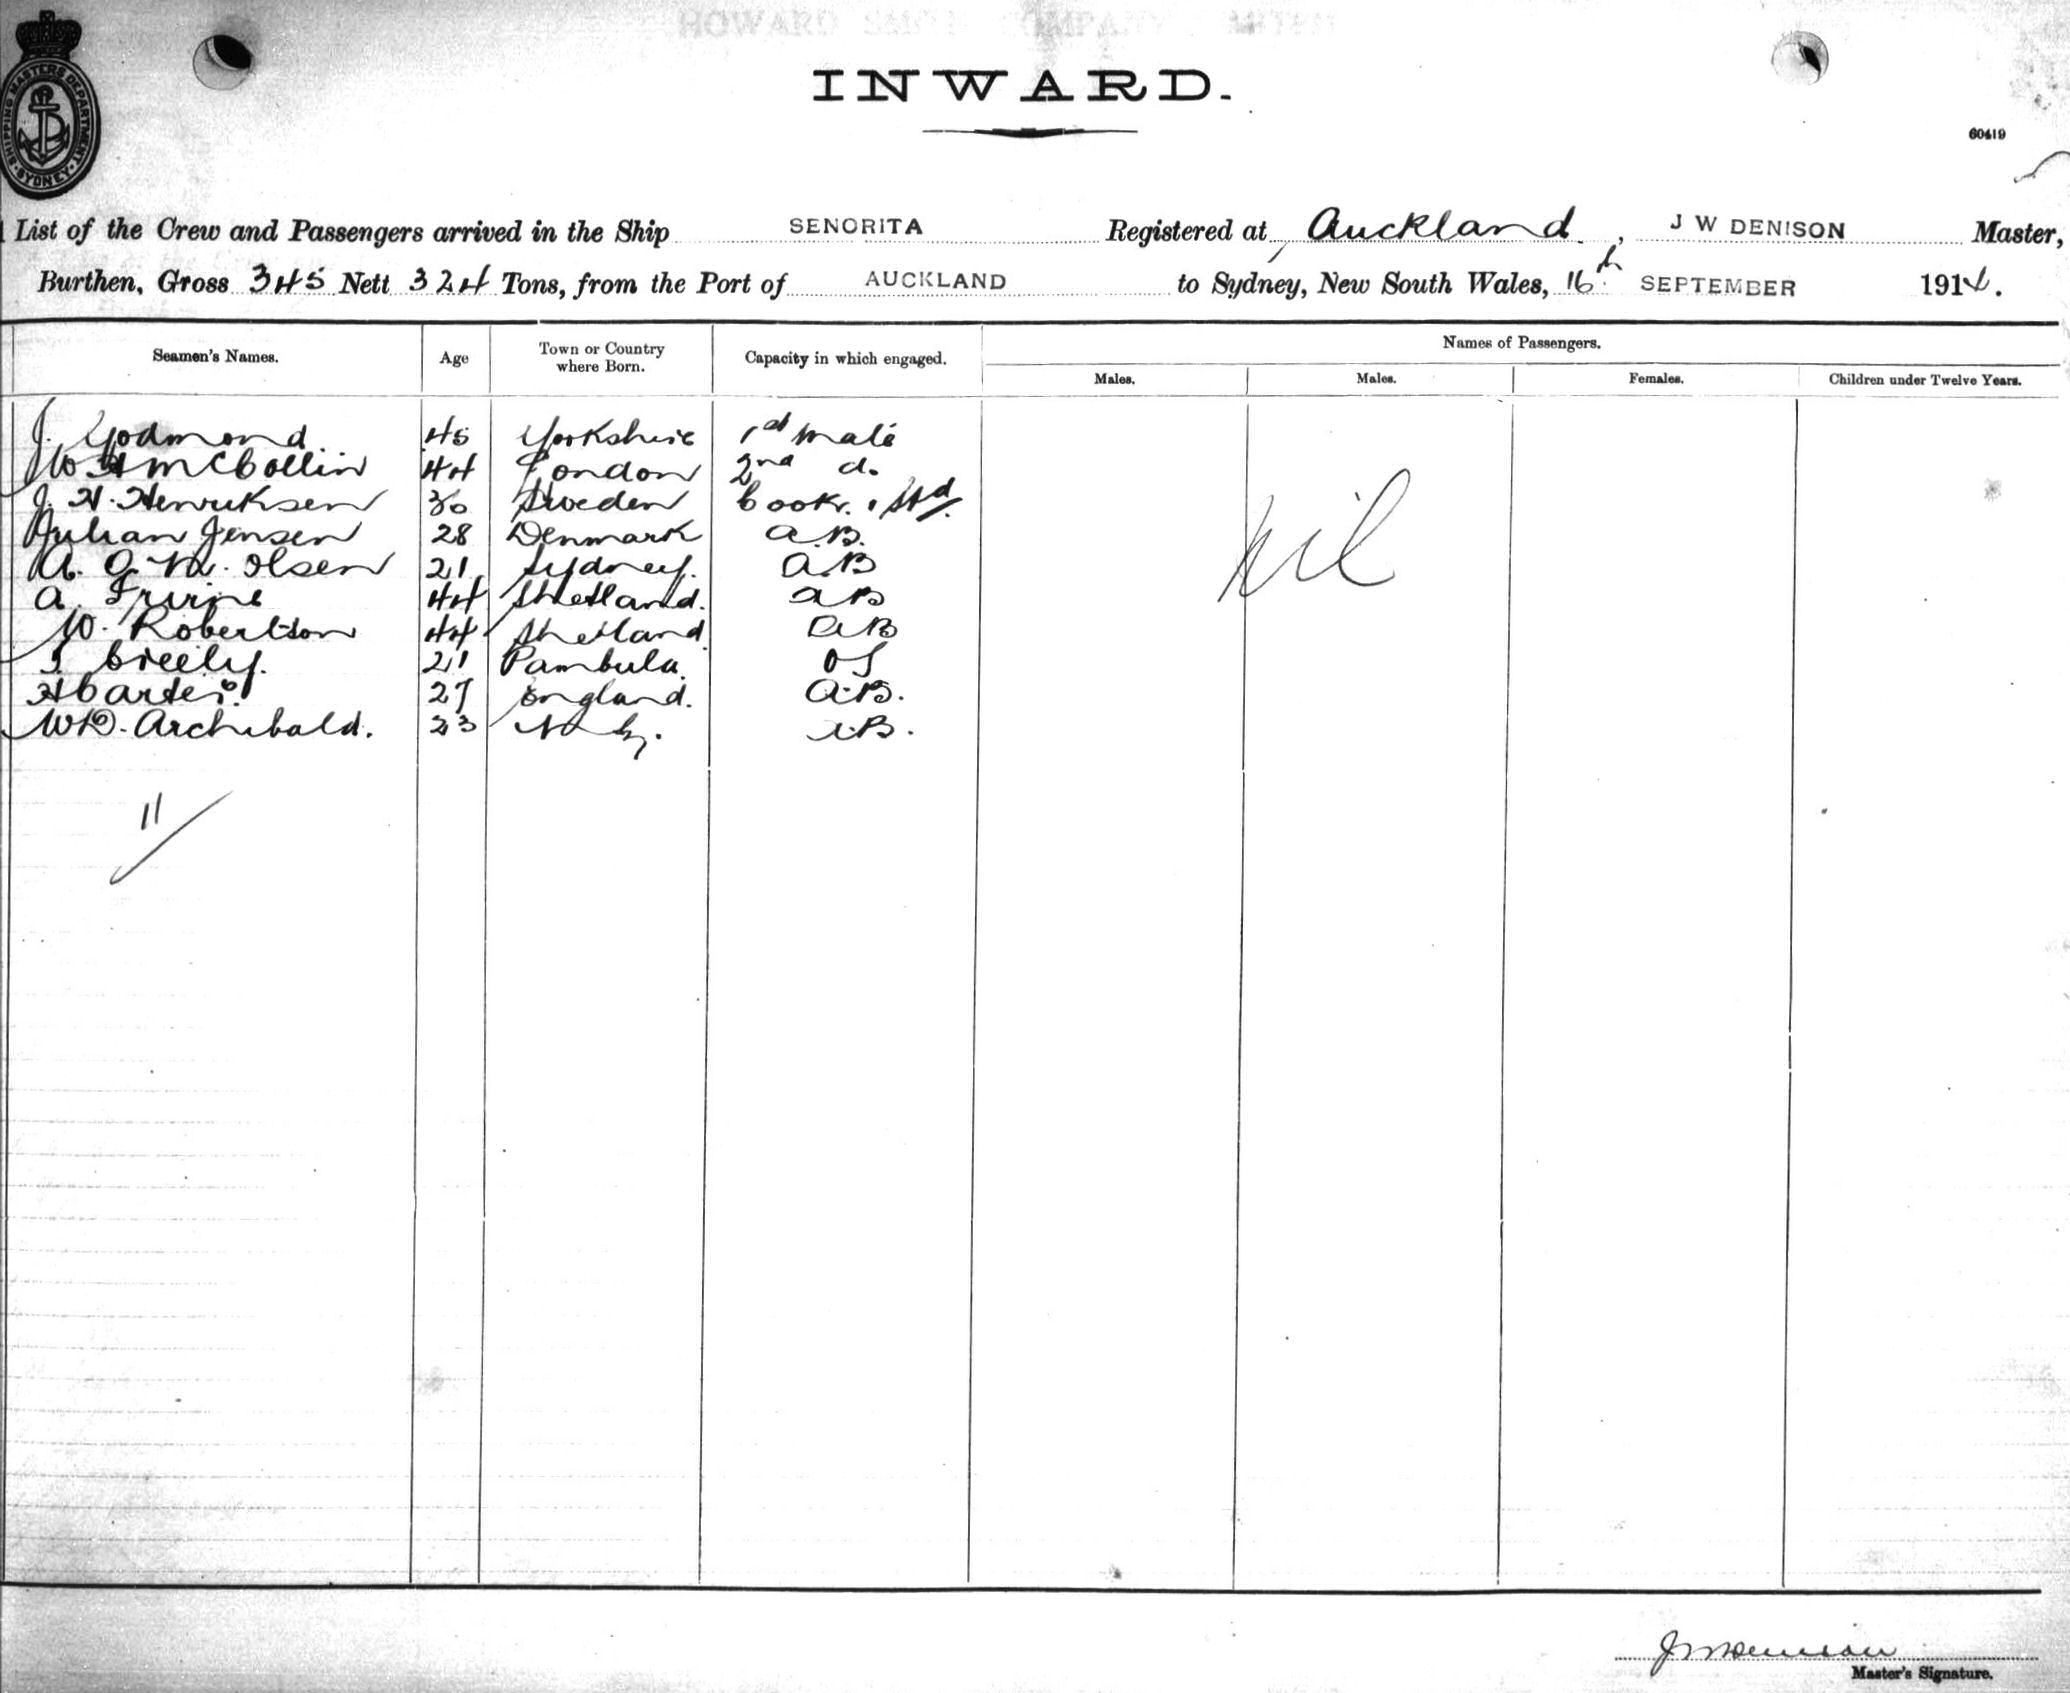 HOWARD SMITH COMPANY LIMITED
INWARD.
SHIPPING MASTERS DEPARTMENT
SYDNEY
60419
List of the Crew and Passengers arrived in the Ship SENORITA Registered at Auckland, J W DENISON Master,
Burthen, Gross 345 Nett 324 Tons, from the Port of AUCKLAND to Sydney, New South Wales, 16th SEPTEMBER 1914.
Names of Passengers.
Seamen's Names. Age Town or Country where Born. Capacity in which engaged. Males. Males. Females. Children under Twelve Years.
J. Godmond 45 Yorkshire 1st Mate
W H McCollin 44 London 2nd do.
J. H. Henriksen 30 Sweden Cook & Std.
Julian Jensen 28 Denmark A.B.
A. O. M. Olsen 21 Sydney. A.B
A. Irvine 44 Shetland. AB
W. Robertson 44 Shetland AB
Creely. 21 Pambula. OS
H Carter 27 England. A.B.
WD. Archibald. 23 N Z. A.B.
Nil
11
J W Denison
Master's Signature.